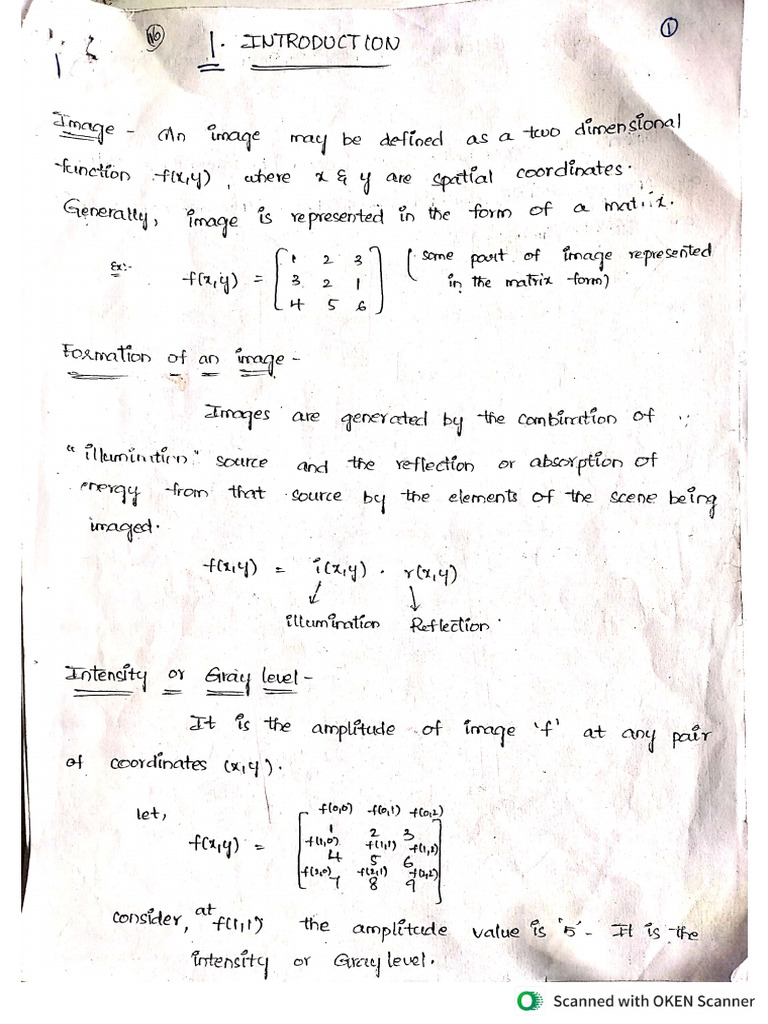 1. INTRODUCTION
1
Image - An image may be defined as a two dimensional
function f(x,y), where x & y are spatial coordinates.
Generally, image is represented in the form of a matrix.
Ex:- f(x,y) = [1 2 3 (some part of image represented
3 2 1 in the matrix form)
4 5 6]
Formation of an image -
Images are generated by the combination of
"illumination" source and the reflection or absorption of
energy from that source by the elements of the scene being
imaged.
f(x,y) = i(x,y) . r(x,y)
illumination Reflection
Intensity or Gray level -
It is the amplitude of image 'f' at any pair
of coordinates (x,y).
let,
f(0,0) f(0,1) f(0,2)
1 2 3
f(x,y) = f(1,0) f(1,1) f(1,2)
4 5 6
f(2,0) f(2,1) f(2,2)
7 8 9
consider, at f(1,1) the amplitude value is '5'- It is the
intensity or Gray level.
Scanned with OKEN Scanner